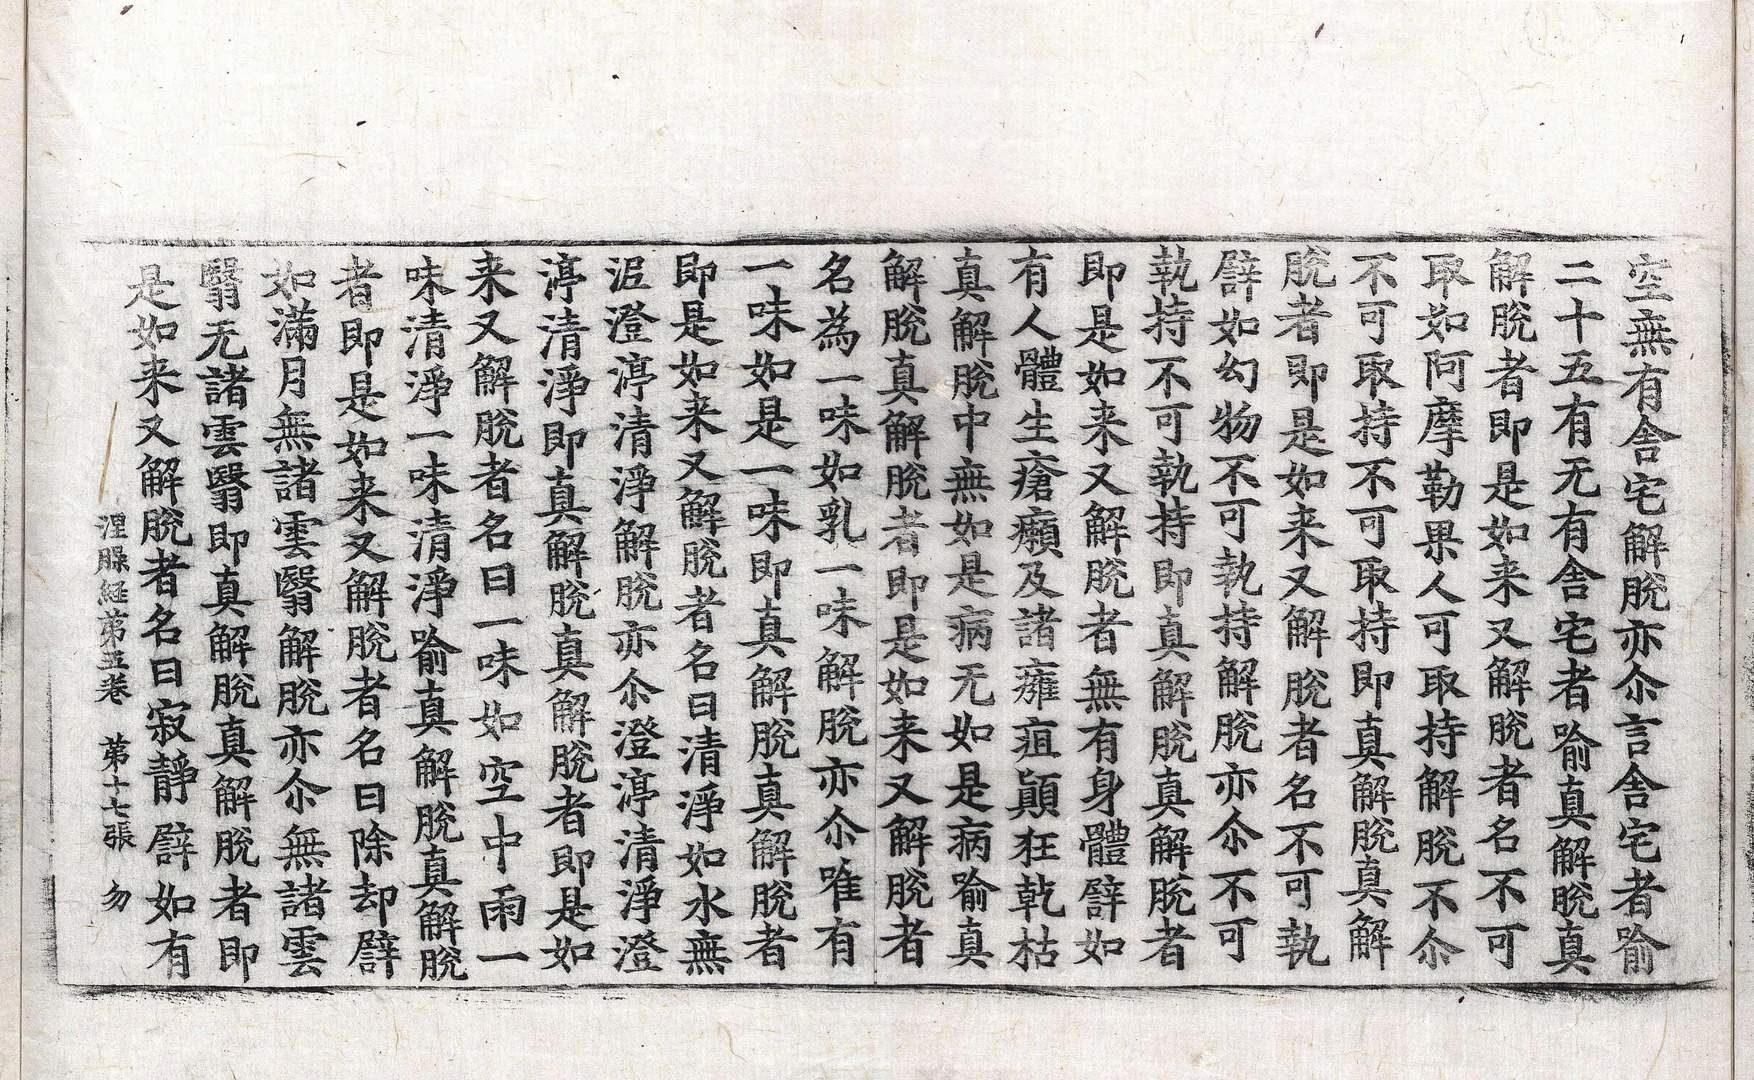 空無有舎宅解脫亦尒言舎宅者喻
二十五有无有舎宅者喻真解脫真
解脫者即是如来又解脫者名不可
取如阿摩勒果人可取持解脫不尒
不可取持不可取持即真解脫真解
脫者即是如来又解脫者名不可執
譬如幻物不可執持解脫亦尒不可
執持不可執持即真解脫真解脫者
即是如来又解脫者無有身體譬如
有人體生瘡癩及諸癰疽顛狂乾枯
真解脫中無如是病无如是病喻真
解脫真解脫者即是如来又解脫者
名為一味如乳一味解脫亦尒唯有
一味如是一味即真解脫真解脫者
即是如来又解脫者名曰清淨如水無
泥澄渟清淨解脫亦尒澄渟清淨澄
渟清淨即真解脫真解脫者即是如
来又解脫者名曰一味如空中雨一
味清淨一味清淨喻真解脫真解脫
者即是如来又解脫者名曰除却譬
如滿月無諸雲翳解脫亦尒無諸雲
翳无諸雲翳即真解脫真解脫者即
是如来又解脫者名曰寂靜譬如有
涅槃経第五卷 第十七張 勿